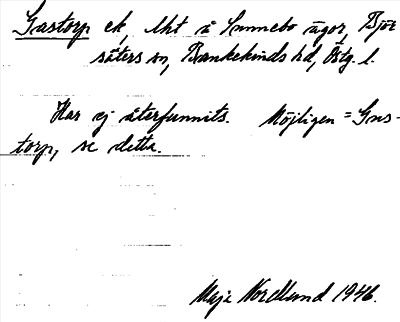 Gastorp ek, lht å Sunnebo ägor, Björ-
säters sn, Bankekinds hd, Östg. l.
Har ej återfunnits. Möjligen = Gus-
torp, se detta.
Maja Nordlund 1946.